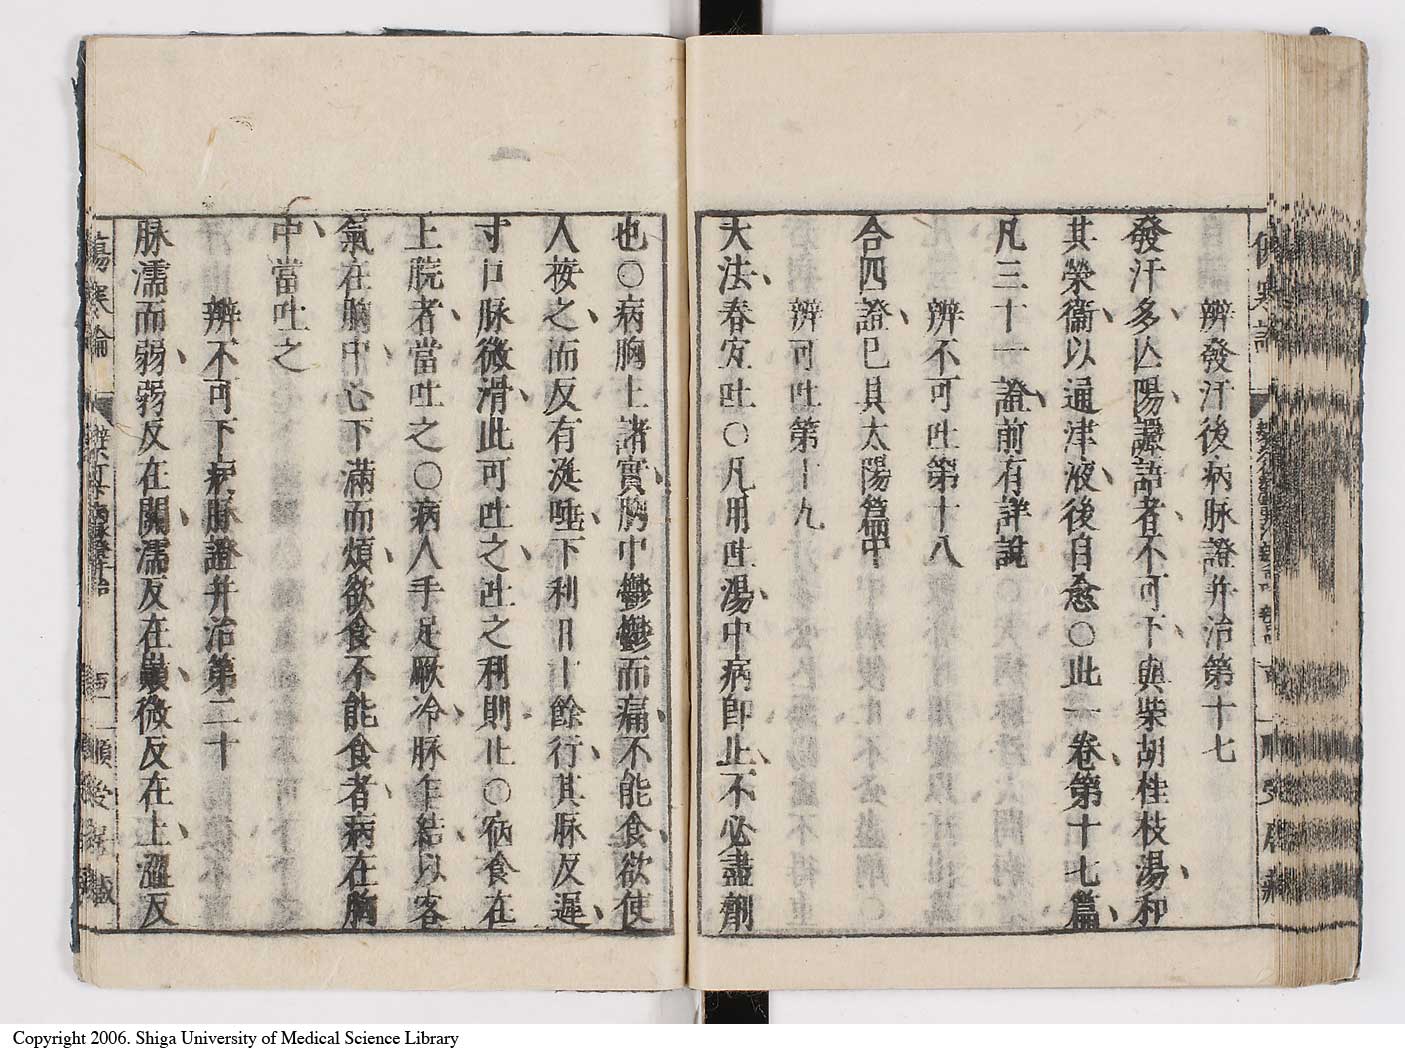 辨發汗後病脉證并治第十七
發汗多亾陽讝語者不可下與柴胡桂枝湯和
其榮衞以通津液後自愈〇此一卷第十七篇
凡三十一證前有詳說
辨不可吐第十八
合四證已具太陽篇中
辨可吐第十九
大法春宜吐〇凡用吐湯中病即止不必盡劑
也〇病胸上諸實胸中鬱鬱而痛不能食欲使
人按之而反有涎唾下利日十餘行其脉反遲
寸口脉微滑此可吐之吐之利則止〇宿食在
上脘者當吐之〇病人手足厥冷脉乍結以客
氣在胸中心下滿而煩欲食不能食者病在胸
中當吐之
辨不可下病脉證并治第二十
脉濡而弱弱反在關濡反在巓微反在上澀反
傷寒論
Copyright 2006. Shiga University of Medical Science Library